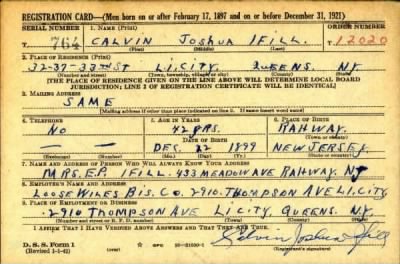 REGISTRATION CARD—(Men born on or after February 17, 1897 and on or before December 31, 1921)
SERIAL NUMBER 1. NAME (Print) ORDER NUMBER
764 CALVIN JOSHUA IFILL. 12020
(First) (Middle) (Last)
2. PLACE OF RESIDENCE (Print)
32-37-33RD ST L.I.CITY QUEENS. N.Y
(Number and street) (Town, township, village, or city) (County) (State)
[THE PLACE OF RESIDENCE GIVEN ON THE LINE ABOVE WILL DETERMINE LOCAL BOARD
JURISDICTION; LINE 2 OF REGISTRATION CERTIFICATE WILL BE IDENTICAL]
3. MAILING ADDRESS
SAME
[Mailing address if other than place indicated on line 2. If same insert word same]
4. TELEPHONE 5. AGE IN YEARS 6. PLACE OF BIRTH
NO 42 YRS. RAHWAY.
DATE OF BIRTH (Town or county)
— — DEC. 22 1899 NEW JERSEY.
(Exchange) (Number) (Mo.) (Day) (Yr.) (State or country)
7. NAME AND ADDRESS OF PERSON WHO WILL ALWAYS KNOW YOUR ADDRESS
MRS. E.P. IFILL. 433 MEADOW AVE RAHWAY. NJ
8. EMPLOYER'S NAME AND ADDRESS
LOOSE WILES. BIS. CO. 2910. THOMPSON AVE L.I. CITY.
9. PLACE OF EMPLOYMENT OR BUSINESS
2910 THOMPSON AVE L.I. CITY, QUEENS. N.Y.
(Number and street or R. F. D. number) (Town) (County) (State)
I AFFIRM THAT I HAVE VERIFIED ABOVE ANSWERS AND THAT THEY ARE TRUE.
D. S. S. Form 1
(Revised 1-1-42) GPO 16—21630-1 Calvin Joshua Ifill
(Registrant's signature)